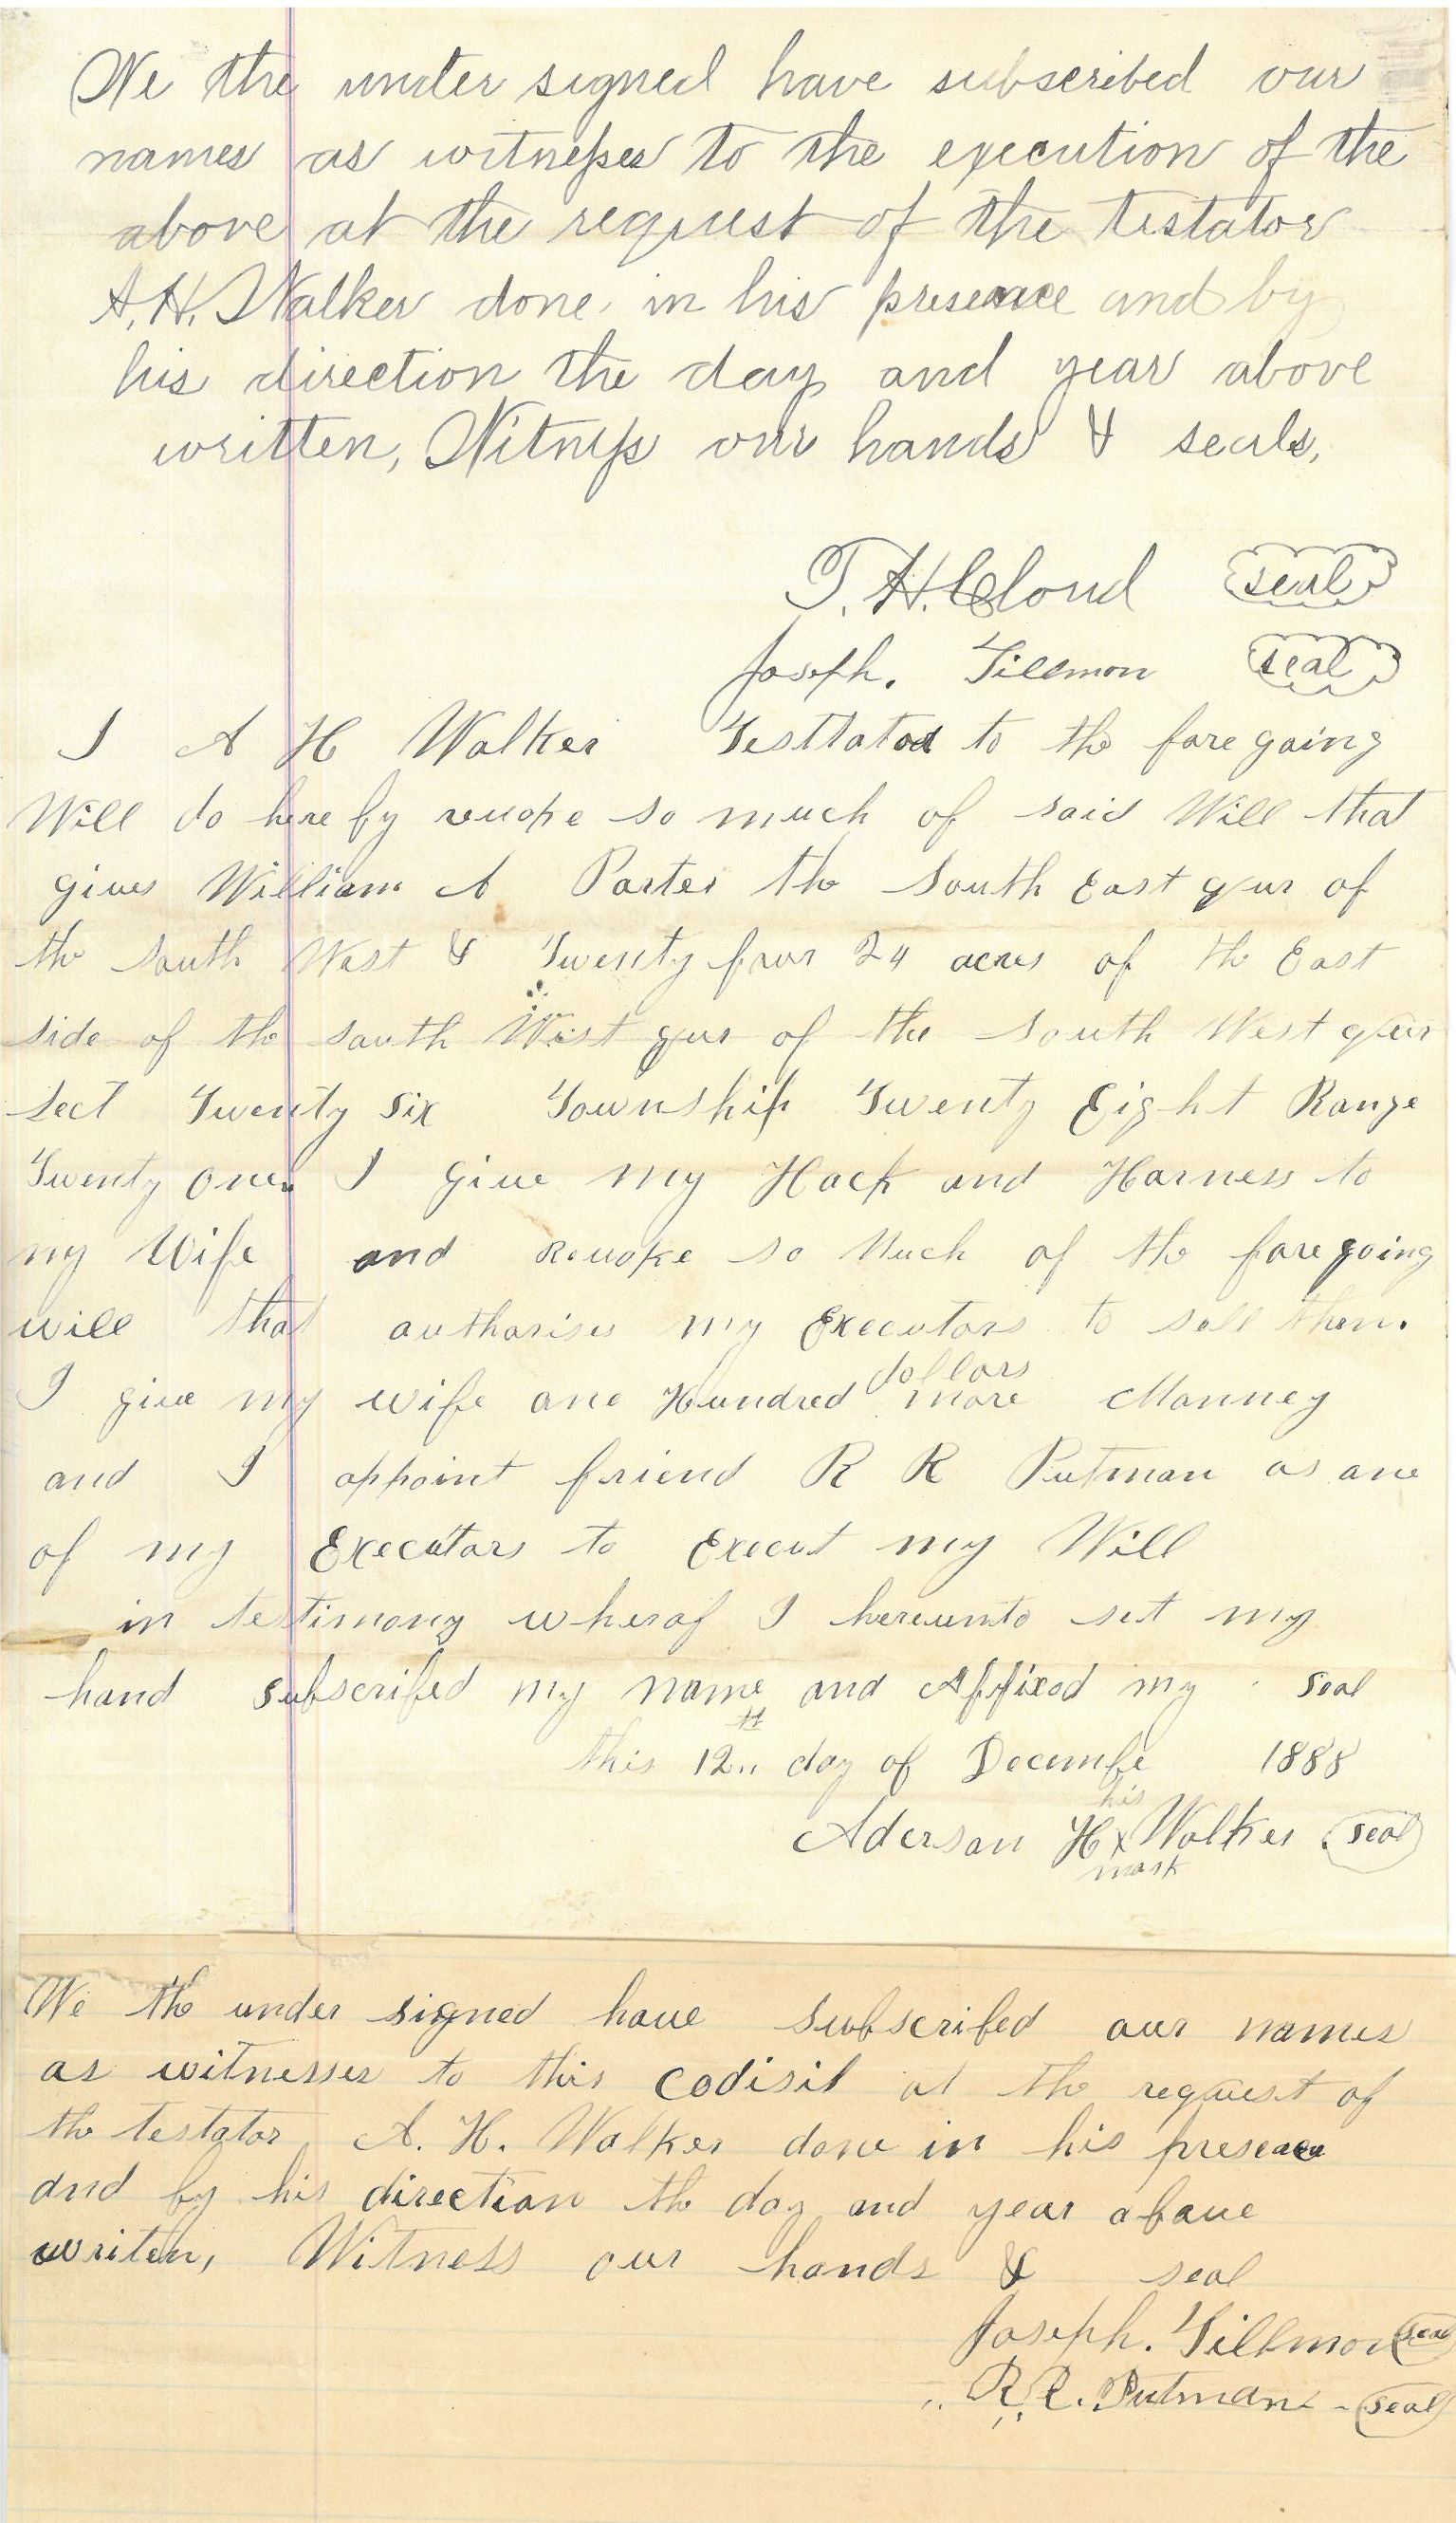 We the under signed have subscribed our
names as witnesses to the execution of the
above at the request of the testator
A.H. Walker done in his presence and by
his direction the day and year above
written, Witness our hands & seals,
T. H. Cloud seal
Joseph. Tillmon seal
I A H Walker Testtator to the fore going
Will do here by revoke so much of said Will that
gives William A Porter the South East qur of
the south West & Twenty four 24 acres of the East
side of the south West qur of the South West qur
Sect Twenty six Township Twenty Eight Range
Twenty one. I give my Hack and Harness to
my Wife and Revoke so Much of the fore going
will that authorises my Executors to sell them.
I give my wife one Hundred dollars more Monney
and I appoint friend R R Putman as one
of my Executors to Execut my Will
in testimony wherof I hereunto set my
hand subscribed my name and Affixed my seal
this 12th day of Decembe 1888
his
Aderson H x Walker seal
mark
We the under signed have subscribed our names
as witnesses to this codisil at the request of
the testator A. H. Walker done in his presence
and by his direction the day and year above
writen, Witness our hands & seal
Joseph. Tillmon seal
R. R. Putman - seal